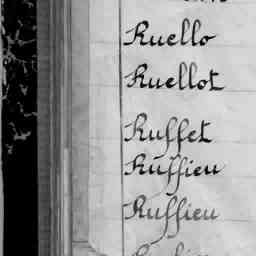 Ruello
Ruellot
Ruffet
Ruffieu
Ruffieu